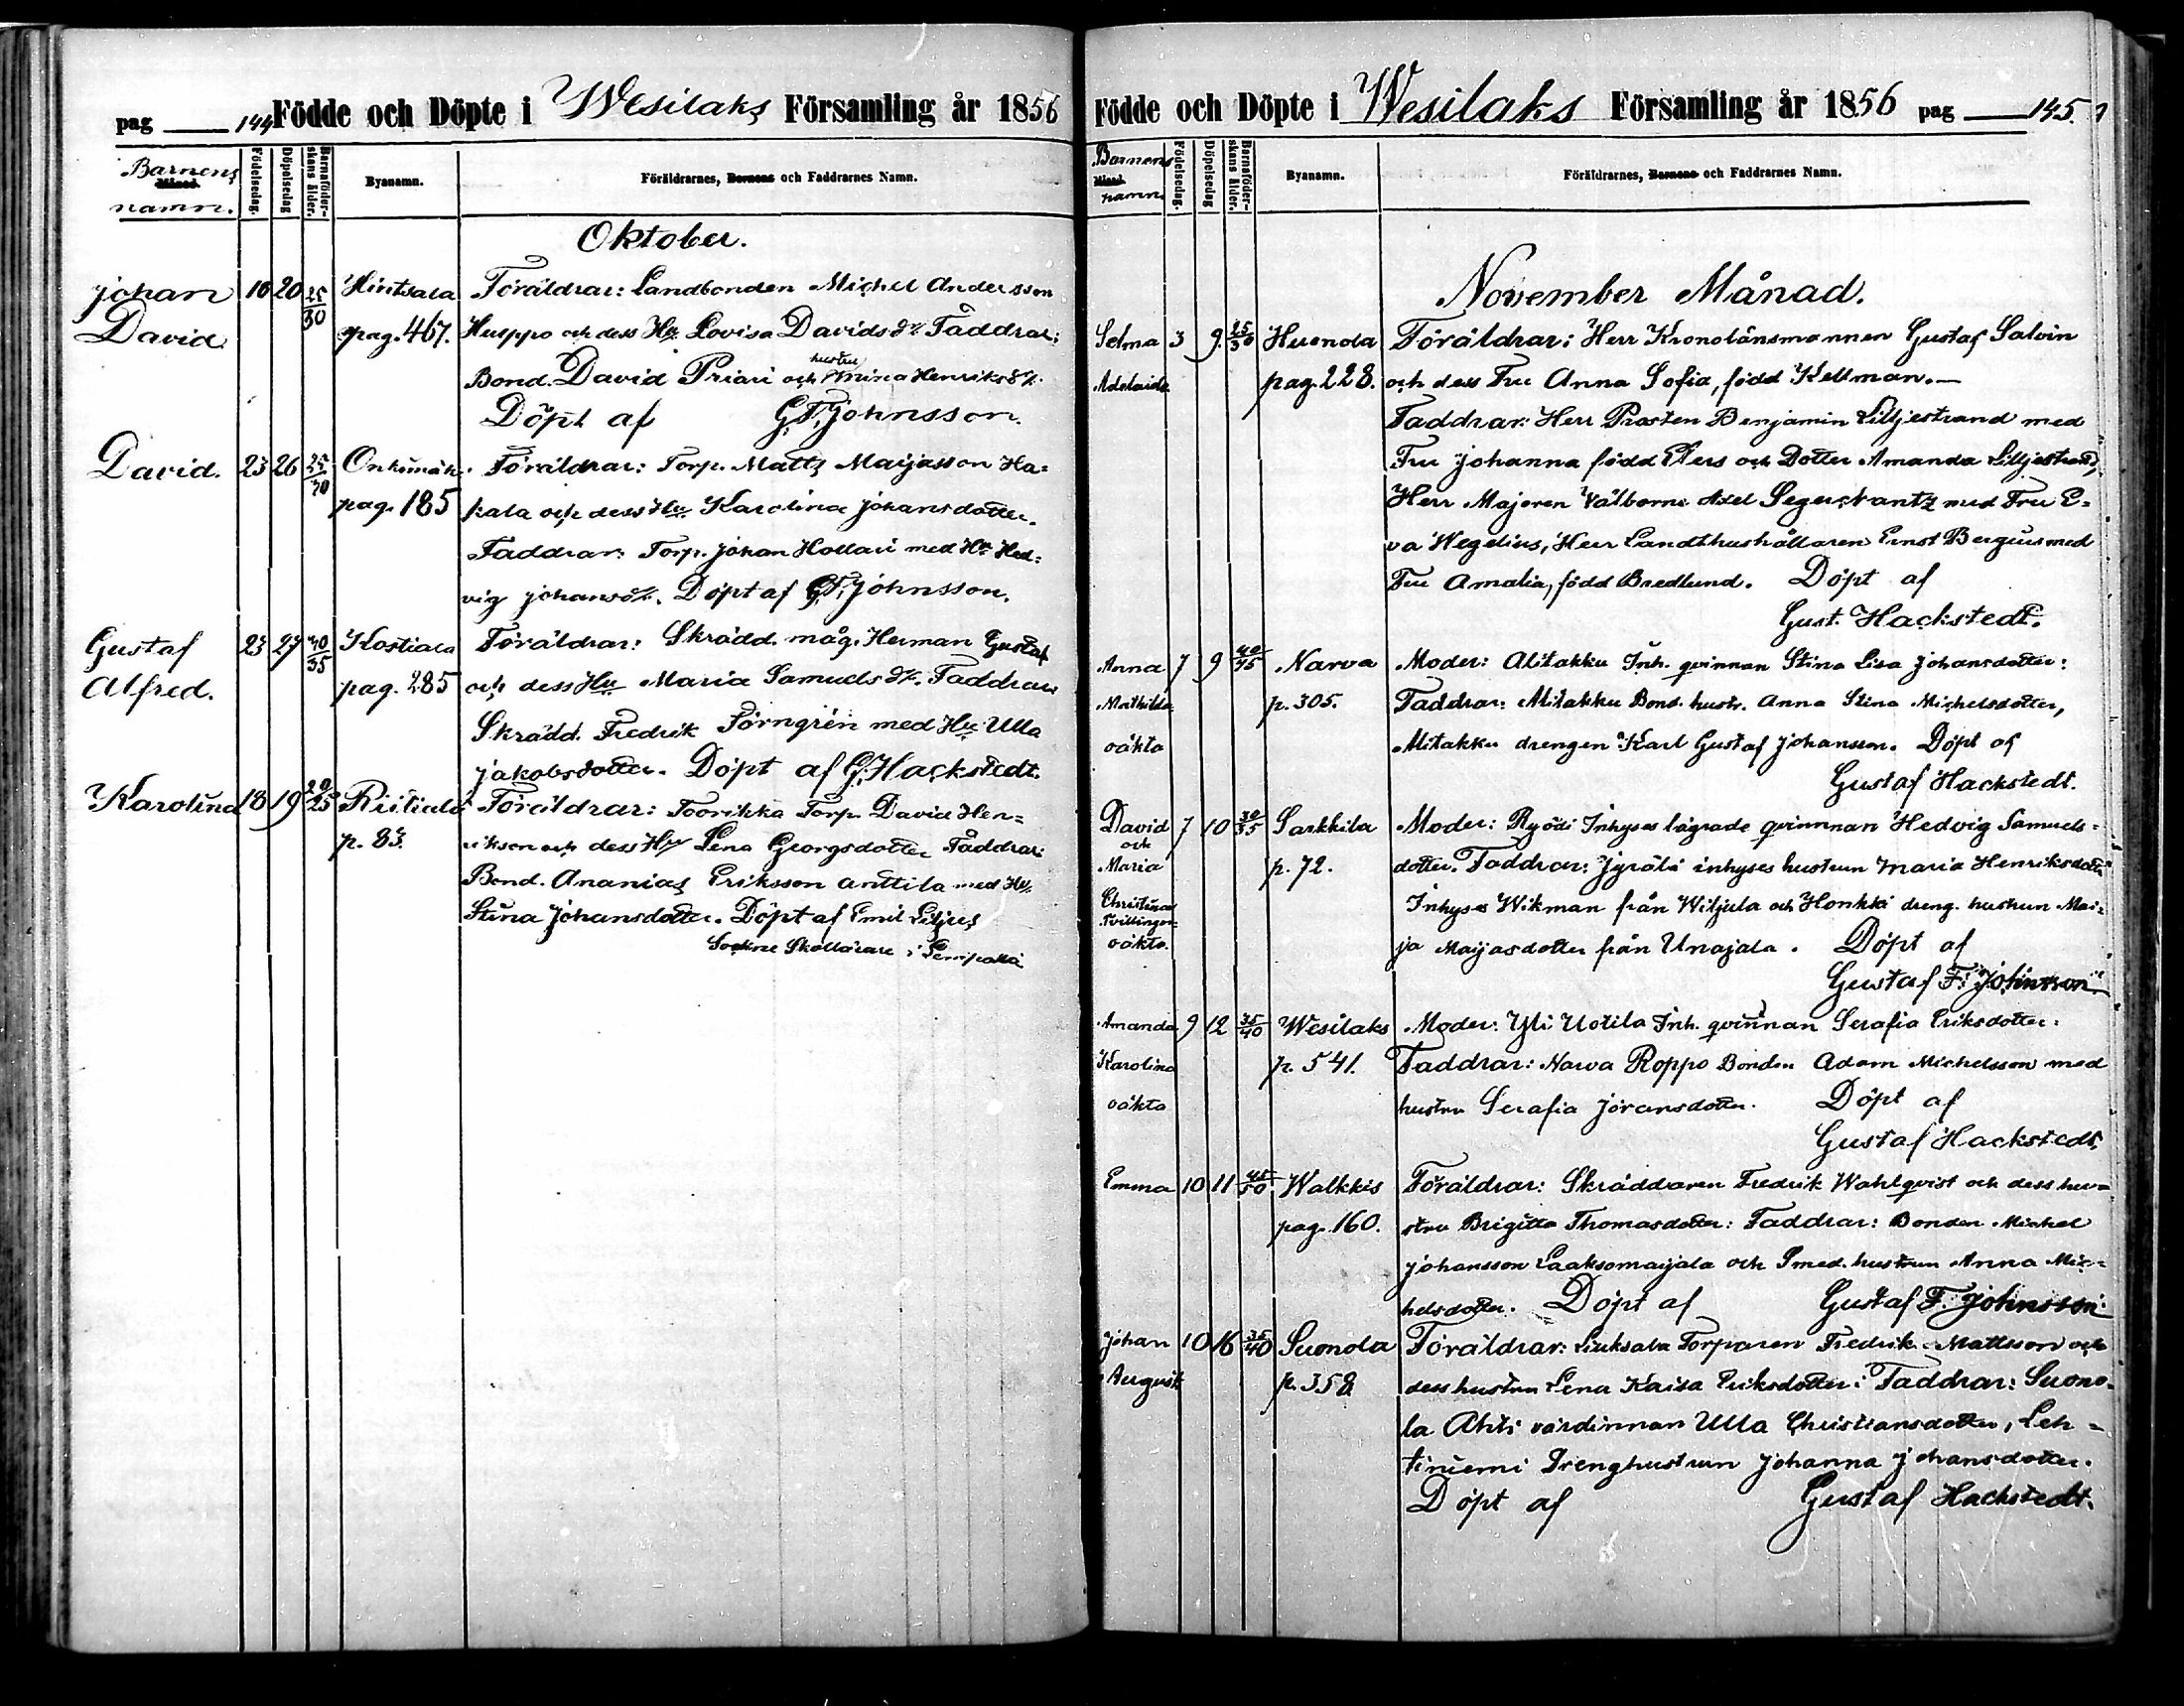 pag 144 Födde och Döpte i Wesilaks Församling år 1856
Barnens namn. Födelsedag. Döpelsedag Barnaföderskans ålder. Byanamn. Föräldrarnes, Barnens och Faddrarnes Namn.
Oktober.
Johan 16 20 25/30 Hintsala Föräldrar: Landbonden Michel Andersson
David pag. 467. Huppo och dess Hu Lovisa Davidsdr. Faddrar:
Bond. David Priari och hustru Henriksdr.
Döpt af G.F. Johnsson.
David. 23 26 Föräldrar: Torp. Matts Maijasson Ha=
pag. 185 kala och dess Hu Karolina Johansdotter.
Faddrar: Torp. Johan Hollari med Hu Hed=
vig Johansdr. Döpt af G.F. Johnsson.
Gustaf 23 27 30/35 Kostiala Föräldrar: Skrädd. måg. Herman Gustaf
Alfred. pag. 285 och dess Hu Maria Samuelsdr. Faddrar
Skrädd. Fredrik Törngrén med Hu Ulla
Jakobsdotter. Döpt af G. Hackstedt.
Karolina 18 19 20/25 Föräldrar: Toorikka Torp. David Hen=
p. 83. rikson och dess Hu Lena Georgsdotter Faddrar:
Bond. Ananias Eriksson Anttila med Hu
Stina Johansdotter. Döpt af Emil Liljus
Sockne Skollärare i
Födde och Döpte i Wesilaks Församling år 1856 pag 145.
Barnens namn Födelsedag. Döpelsedag Barnaföderskans ålder. Byanamn. Föräldrarnes, Barnens och Faddrarnes Namn.
November Månad.
Selma 3 9. 25/30 Huonola Föräldrar: Herr Kronolänsmannen Gustaf Salvin
Adelaide pag. 228. och dess Fru Anna Sofia, född Kellman.—
Faddrar: Herr Prosten Benjamin Liljestrand med
Fru Johanna född och Dotter Amanda Liljestrand,
Herr Majoren Välborne Axel Segerkrantz med Fru E=
va Wegelius, Herr Landthushållaren Ernst Bergius med
Fru Amalia, född Bredlund. Döpt af
Gust. Hackstedt.
Anna 7 9 40/45 Narva Moder: Alitakku Inh. qvinnan Stina Lisa Johansdotter:
Mathilda p. 305. Faddrar: Alitakku Bond. hustr. Anna Stina Michelsdotter,
oäkta Alitakku drengen Karl Gustaf Johansson. Döpt af
Gustaf Hackstedt.
David 7 10 30/35 Sarkkila Moder: Ryödi Inhyses lägrade qvinnnan Hedvig Samuels=
och
Maria p. 72. dotter. Faddrar: Jyrälä inhyses hustrun Maria Henriksdotter
Christina Inhyses Wikman från Wiljula och Honkki dreng. hustrun Mai=
Tvillingar
oäkta. ja Maijasdotter från Unajala. Döpt af
Gustaf F. Johnsson
Amanda 9 12 35/40 Wesilaks Moder: Yli Uotila Inh. qvinnan Serafia Eriksdotter:
Karolina p. 541. Faddrar: Narva Roppo Bonden Adam Michelsson med
oäkta hustru Serafia Jöransdotter. Döpt af
Gustaf Hackstedt.
Emma 10 11 45/50 Walkkis Föräldrar: Skräddaren Fredrik Wahlqvist och dess hu=
pag. 160. stru Brigitta Thomasdotter: Faddrar: Bonden Michel
Johansson Laaksomaijala och Smed. hustrun Anna Mic=
helsdotter. Döpt af Gustaf F. Johnsson
Johan 10 16 35/40 Suonola Föräldrar: Liuksala Torparen Fredrik Mattsson och
August p. 358. dess hustru Lena Kaisa Eriksdotter: Faddrar: Suono=
la Ahti värdinnan Ulla Christiansdotter, Leh=
tiniemi Drenghustrun Johanna Johansdotter.
Döpt af Gustaf Hackstedt.